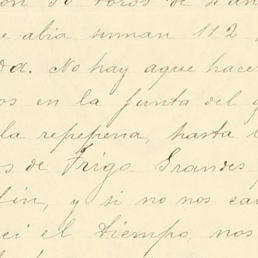 on 50 toros de
e abia suman 112
da. No hay aque hacer
os en la junta del g
la repepena, hasta l
s de Trigo Grandes
fin, y si no nos ca
ci el tiempo, nos